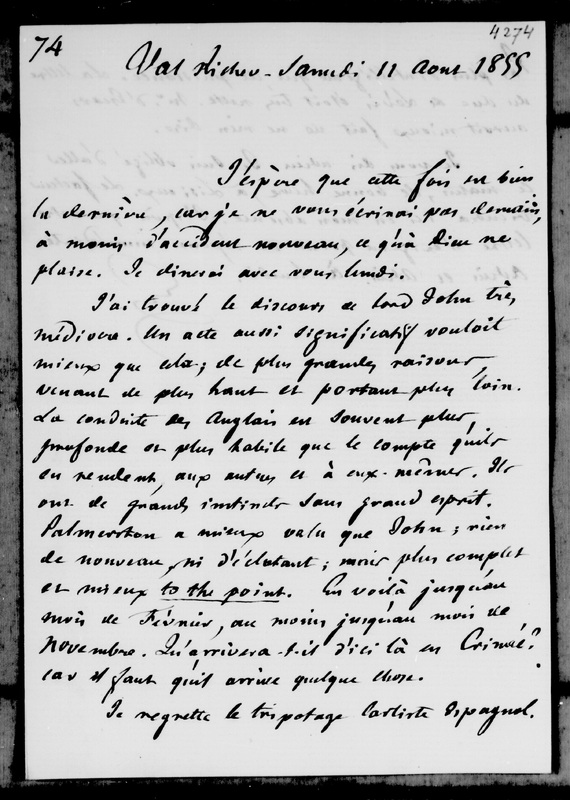 74
4274
Val Richer - Samedi 11 Aout 1855
J'espère que cette fois est bien
la dernière, car je ne vous écrirai pas demain,
à moins d'accident nouveau, ce qu'à Dieu ne
plaise. Je dinerai avec vous lundi.
J'ai trouvé le discours de lord John très
médiocre. Un acte aussi significatif vouloit
mieux que cela; de plus grandes raisons,
venant de plus haut et portant plus loin.
La conduite des Anglais est souvent plus
profonde et plus habile que le compte qu'ils
en rendent, aux autres et à eux-mêmes. Ils
ont de grands instincts sans grand esprit.
Palmerston a mieux valu que John; rien
de nouveau, ni d'éclatant; mais plus complet
et mieux to the point. En voilà jusqu'au
mois de Février, au moins jusqu'au mois de
Novembre. Qu'arrivera-t-il d'ici là en Crimée?
car il faut qu'il arrive quelque chose.
Je regrette le tripotage Carliste Espagnol.